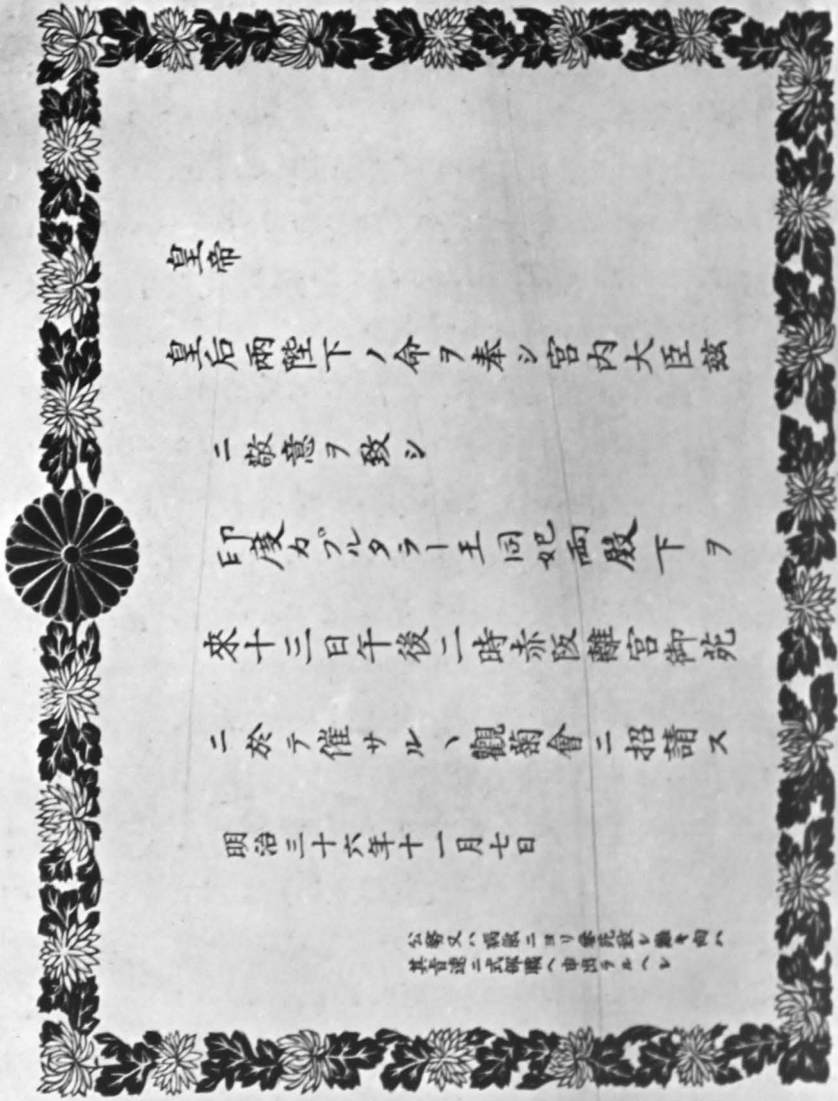 皇帝
皇后兩陛下ノ命ヲ奉シ宮内大臣茲
ニ敬意ヲ致シ
印度カプルタラー王同妃両殿下ヲ
來十三日午後二時赤阪離宮御苑
ニ於テ催サルヽ觀菊會ニ招請ス
明治三十六年十一月七日
公務又ハ病故ニヨリ參苑致シ難キ向ハ
其旨速ニ式部職ヘ申出ラルヘシ